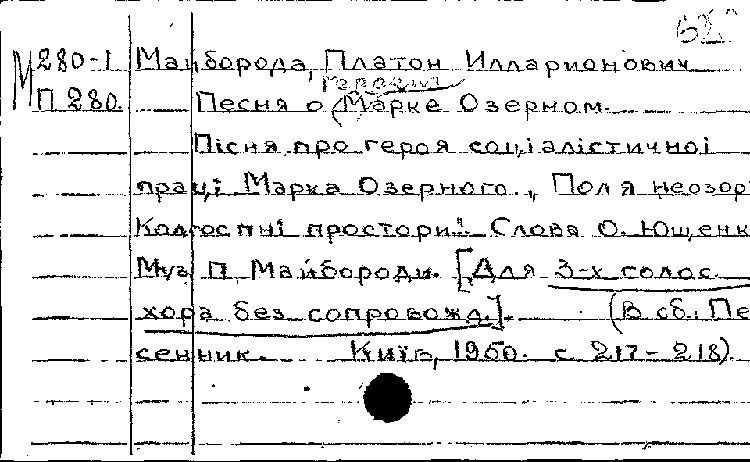 62
М 280-1 Майборода, Платон Илларионович
героине
П 280. Песня о (Марке Озерном.
Пісня про героя соціалістичної
праці Марка Озерного. „Поля неозор
Колгоспні простори". Слова О. Ющенк
Муз. П. Майбороди. [Для 3-х голос.
хора без сопровожд.]. (В сб.: Пе
сенник. Київ, 1950. с. 217-218).